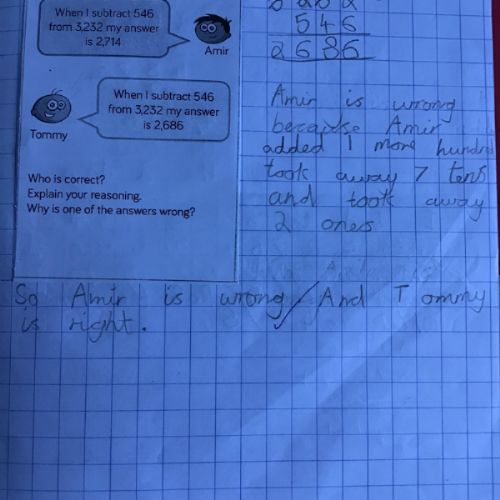 When I subtract 546
from 3,232 my answer
is 2,714
Amir
When I subtract 546
from 3,232 my answer
is 2,686
Tommy
Who is correct?
Explain your reasoning.
Why is one of the answers wrong?
546
2686
Amir is wrong
because Amir
added 1 more hundred
took away 7 tens
and took away
2 ones
So Amir is wrong And Tommy
is right.